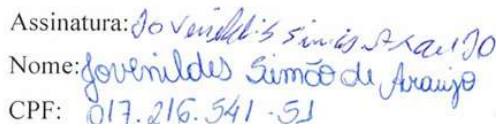 Assinatura: Jovenildes Simão Araujo
Nome: Jovenildes Simão de Araujo
CPF: 017.216.541-51